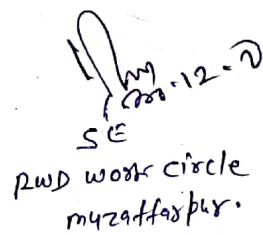 SE
RWD work circle
muzaffarpur.